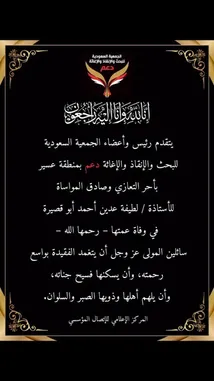 الجمعية السعودية
للبحث والإنقاذ والإغاثة
دعم
إنا لله وإنا إليه راجعون
يتقدم رئيس وأعضاء الجمعية السعودية
للبحث والإنقاذ والإغاثة دعم بمنطقة عسير
بأحر التعازي وصادق المواساة
للأستاذة / لطيفة عدين أحمد أبو قصيرة
في وفاة عمتها - رحمها الله -
سائلين المولى عز وجل أن يتغمد الفقيدة بواسع
رحمته، وأن يسكنها فسيح جناته،
وأن يلهم أهلها وذويها الصبر والسلوان.
المركز الإعلامي للإتصال المؤسسي